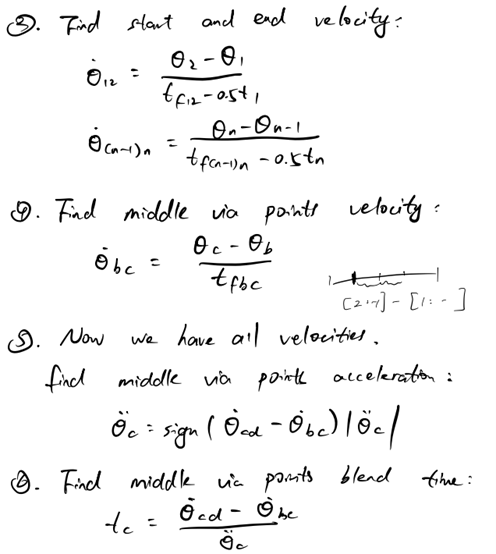 ③. Find start and end velocity:
θ̇₁₂ = (θ₂ − θ₁) / (t_f12 − 0.5t₁)
θ̇_(n-1)n = (θ_n − θ_n-1) / (t_f(n-1)n − 0.5t_n)
④. Find middle via points velocity:
θ̇_bc = (θ_c − θ_b) / t_fbc
[2:-1] - [1:-]
⑤. Now we have all velocities.
find middle via point acceleration:
θ̈_c = sign(θ̇_cd − θ̇_bc)|θ̈_c|
⑥. Find middle via points blend time:
t_c = (θ̇_cd − θ̇_bc) / θ̈_c